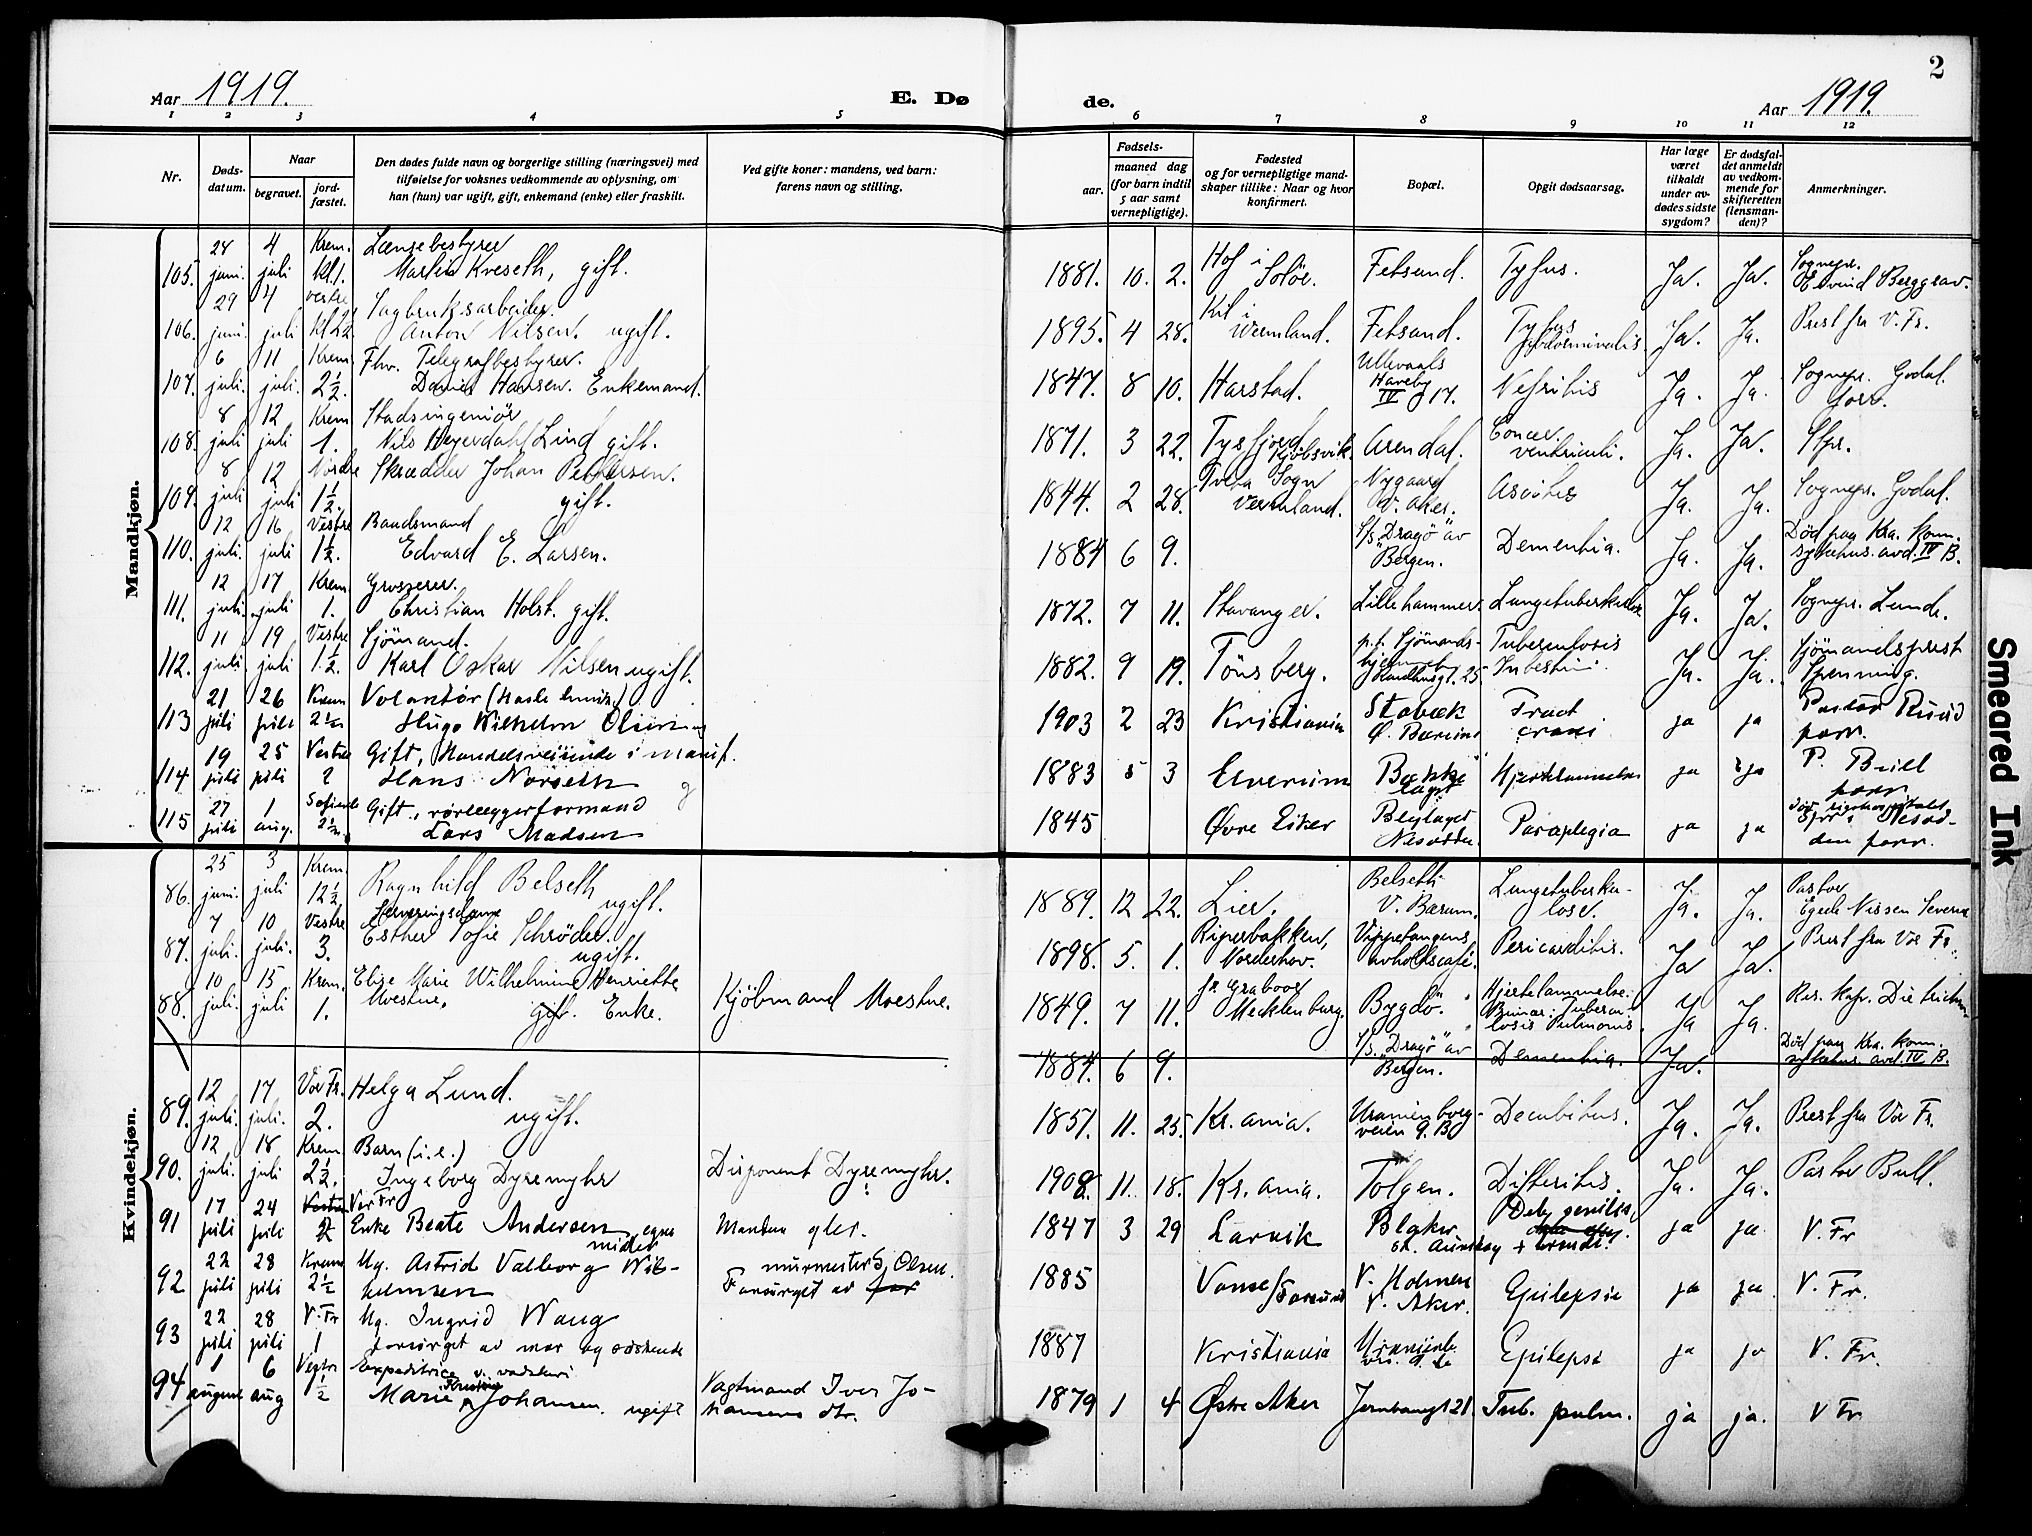 2
Aar 1919.
E. Dø
de.
Aar 1919.
1 2 3 4 5 6 7 8 9 10 11 12
Nr.
Døds-
datum.
Naar
begravet.
jord-
fæstet.
Den dødes fulde navn og borgerlige stilling (næringsvei) med
tilføielse for voksnes vedkommende av oplysning, om
han (hun) var ugift, gift, enkemand (enke) eller fraskilt.
Ved gifte koner: mandens, ved barn:
farens navn og stilling.
Fødsels-
aar.
maaned dag
(for barn indtil
5 aar samt
vernepligtige).
Fødested
og for vernepligtige mand-
skaper tillike: Naar og hvor
konfirmert.
Bopæl.
Opgit dødsaarsag.
Har læge
været
tilkaldt
under av-
dødes sidste
sygdom?
Er dødsfal-
det anmeldt
av vedkom-
mende for
skifteretten
(lensman-
den)?
Anmerkninger.
Mandkjøn.
28 4 Krem. Lænsebestyrer Hof i Sognepr.
105. juni. juli kl 1. Martin Kveseth, gift. 1881. 10. 2. Soløe. Fetsund. Tyfus. Ja. Ja. Eivind Berggrav.
29 4 Vestre Sagbruksarbeider. Kil i
106. juni. juli Anton Nilsen. ugift. 1895. 4 28. Wermland. Fetsund. Tyfus Ja. Ja. Prest fra V. Fr.
6 11 Krem. Fhv. Telegrafbestyrer. Ullevaals
107. juli. juli. 2½. Daniel Hansen. Enkemand. 1847. 8 10. Harstad. Haveby IV g 17. Nefritis Ja. Ja. Sognepr. Godal. forr.
8 12 Krem Stadsingeniør Cancer
108. juli juli 1. Nils Heyerdahl Lind gift. 1871. 3 22. Tysfjord Kjøbsvik. Arendal. ventriculi. Ja. Ja. Spr.
8 12 Nordre Skrædder Johan Pettersen. Sogn Nygaard
109. juli juli 1½. gift. 1844. 2 28. Vermland. V. Aker. Ascites Ja. Ja. Sognepr. Godal.
12 16 Vestre Baadsmand S/s "Dragö" av Død paa Kra. kom.
110. juli. juli 1½. Edvard E. Larsen. 1884 6 9. Bergen. Dementia. Ja. Ja. sykehus. avd. IV B.
12 17 Krem Grosserer.
111. juli. juli 1. Christian Holst. gift. 1872. 7 11. Stavanger. Lillehammer. Lungetuberkulose Ja. Ja. Sognepr. Lunde.
11 19 Vestre Sjömand. p.t. Sjömands- Tuberculosis Sjömandsprest
112. juli juli 1½. Karl Oskar Nilsen ugift. 1882. 9 19. Tönsberg. 25. Intestini. Ja. Ja. Spenning.
21 26 Krem Volontør
113 juli juli 2½ Hugo Wilhelm Olsen ug 1903 2 23 Kristiania Stabæk Ø. Bærum Fract cranii ja ja Pastor Ruud forr.
19 25 Vestre Gift, Handelsreisende i manuf.
114 juli juli 2 Hans Norseth 1883 5 3 Elverum Bække laget Hjertelammelse ja ja P. Bull forr.
27 1 Sofienb Gift, rørlæggerformand
115 juli aug. 2½. Lars Madsen 1845 Øvre Eiker Nesodden Paraplegia ja ja Spr i Nesod-
den forr.
Kvindekjøn.
25 3 Krem. Belseth Lungetuberku- Pastor
86. juni. juli 12½ Ragnhild Belseth ugift. 1889. 12 22. Lier. V. Bærum. lose. Ja. Ja. Egede Nissen Severin
7 10 Vestre Serveringsdame Riperbakken, Vippetangens
87. juli. juli. 3. Esther Sofie Schrøder. ugift. 1898. 5. 1. Norderhov. avholdscafé. Pericarditis. Ja Ja. Prest fra Vor Fr.
10 15 Krem. Elise Marie Wilhelmine Henriette fr. Grabow Hjertelammelse.
88. juli. juli 1. Moestue, gift. Enke. Kjöbmand Moestue. 1849. 7 11. Mecklenburg. Bygdö. Tubercu-
losis Pulmonis. Ja Ja. Res. kap. Dietrichson
S/s. "Dragö" av Død paa Kra. kom.
1884. 6 9. Bergen. Dementia. Ja. sykehus. avd. IV B.
12 17 Vor Fr. Helga Lund. Uranienborg-
89. juli. juli. 2. ugift. 1851. 11. 25. Kr.ania. veien 9. B Decubitus. Ja. Ja. Prest fra Vor Fr.
12 18 Krem Barn (i.e.)
90. juli. juli 2½. Ingeborg Dyremyhr Disponent Dyremyhr. 1908. 11. 18. Kr.ania. Tolgen. Difteritis. Ja. Ja. Pastor Bull.
17 24 Vestre Vor Fr
91 juli juli 2 Enke Beate Andersen egne midler Manden 1847 3 29 Larvik Blaker st. Aurskog ja ja V. Fr
22 28 Krem Ug. Astrid Valborg Wil- murmester S. Olsen.
92 juli juli 2½ helmsen Forsørget av far 1885 Vanse/Farsund V. Holmen V. Aker. Epilepsie ja ja V. Fr.
22 28 V. Fr Ug. Ingrid Waug
93 juli juli 1 forsörget av mor og søskende 1887 Kristiania Epilepsi ja ja V. Fr.
1 6 Vestre Expeditrice v. vadskeri
94 august aug 1½ Marie Johansen. ugift Vagtmand Iver Jo-
hansens dtr. 1879 1 4 Østre Aker Jernbangt 21. Tub. pulm. ja ja. V Fr
Smeared Ink